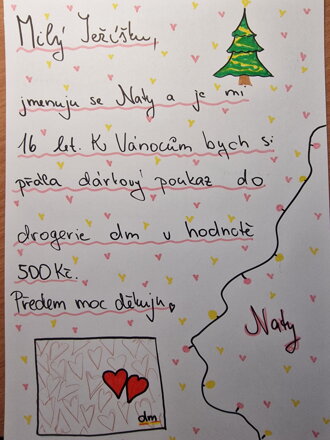 Milý Ježíšku,
jmenuju se Naty a je mi
16 let. K Vánocům bych si
přála dárkový poukaz do
drogerie dm v hodnotě
500 Kč.
Předem moc děkuju
Naty
dm